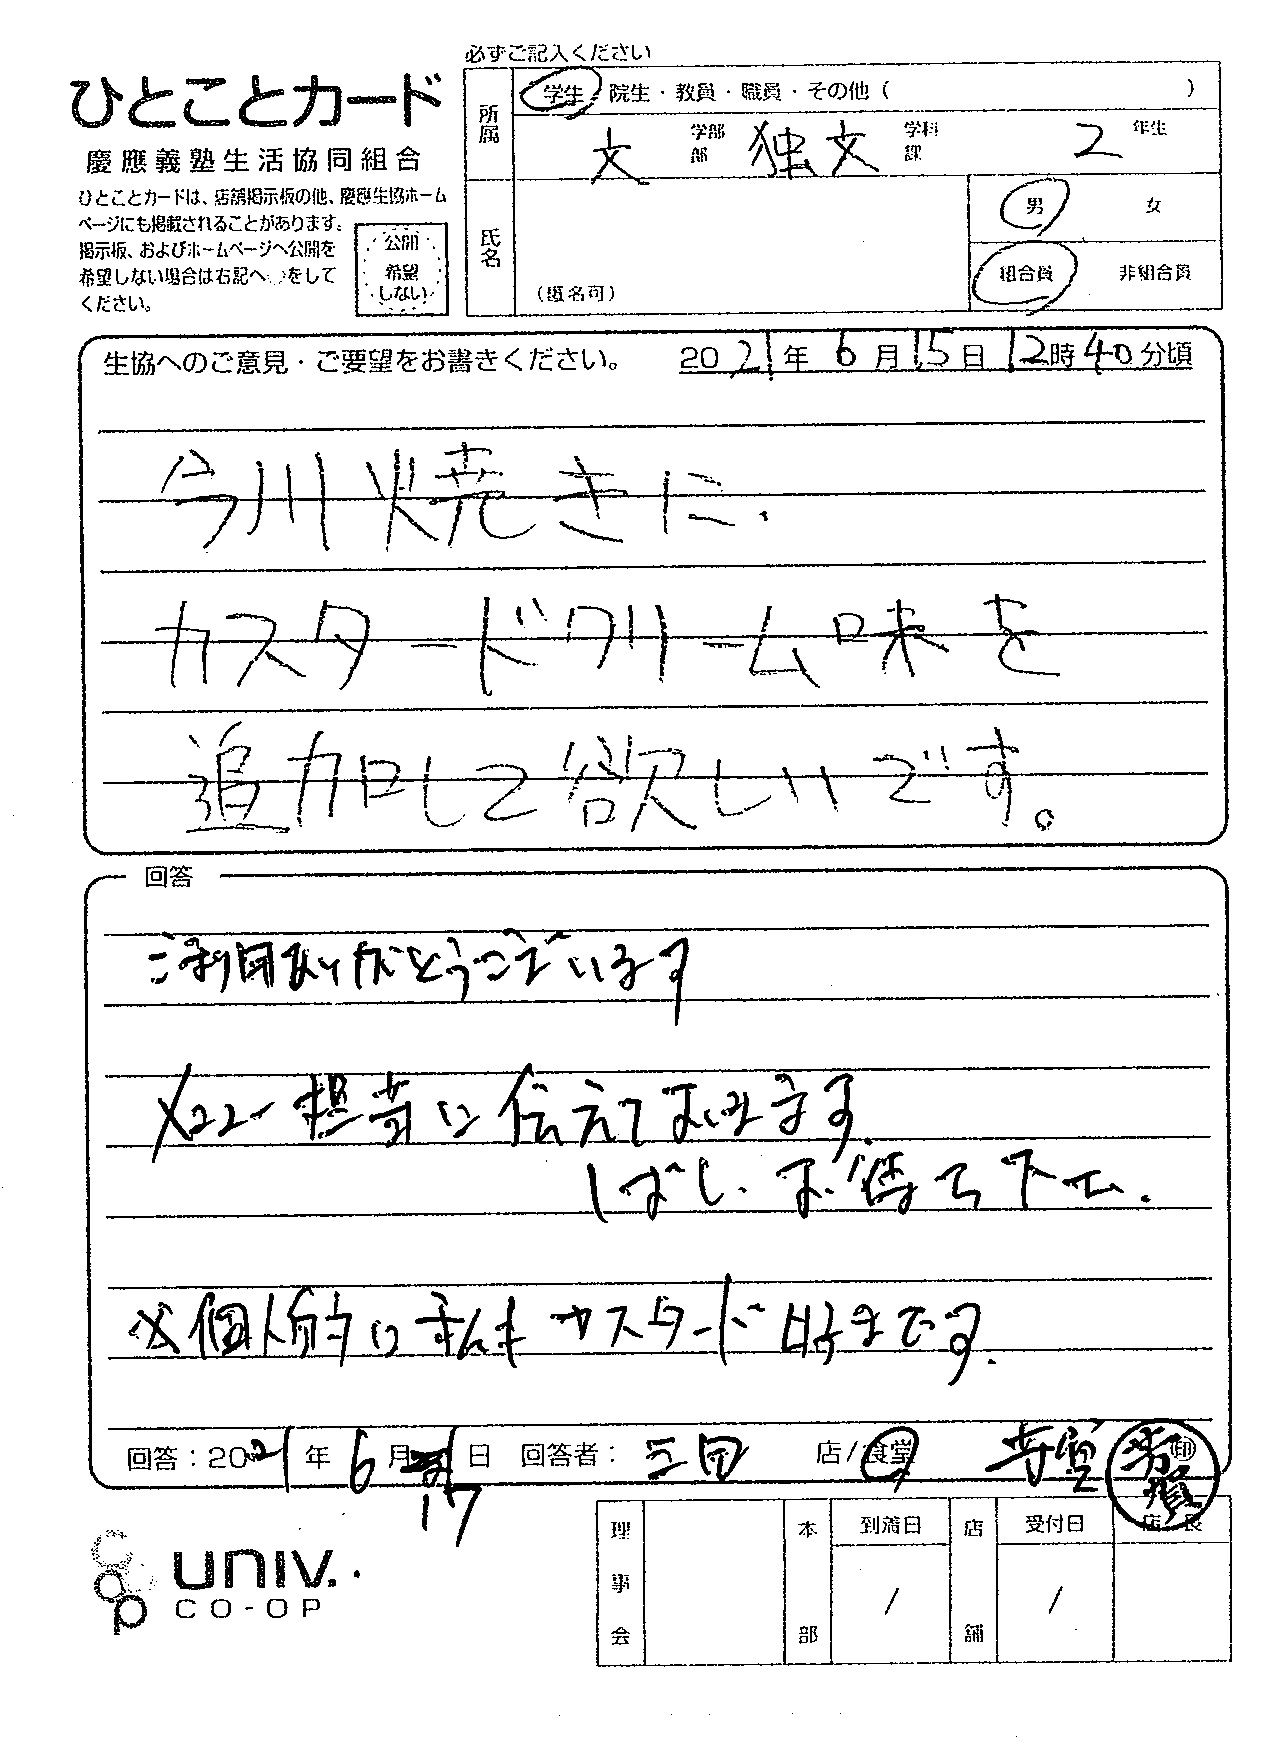 必ずご記入ください
ひとことカード
慶應義塾生活協同組合
ひとことカードは、店舗掲示板の他、慶應生協ホーム
ページにも掲載されることがあります。
掲示板、およびホームページへ公開を
希望しない場合は右記へ○をして
ください。
公開
希望
しない
所属
学生・院生・教員・職員・その他（　）
文 学部 部 独文 学科 課 2 年生
氏名
（匿名可）
男 女
組合員 非組合員
生協へのご意見・ご要望をお書きください。 2021年6月15日12時40分頃
今川焼きに、
カスタードクリーム味を
追加して欲しいです。
回答
ご利用ありがとうございます
メニュー担当に伝えておきます。
しばしお待ち下さい。
※個人的に私もカスタード好きです。
回答：2021年6月 日 回答者： 三田 店/食堂
17
理事会
本部
到着日
/
店舗
受付日
/
店長
印
UNIV.
CO-OP